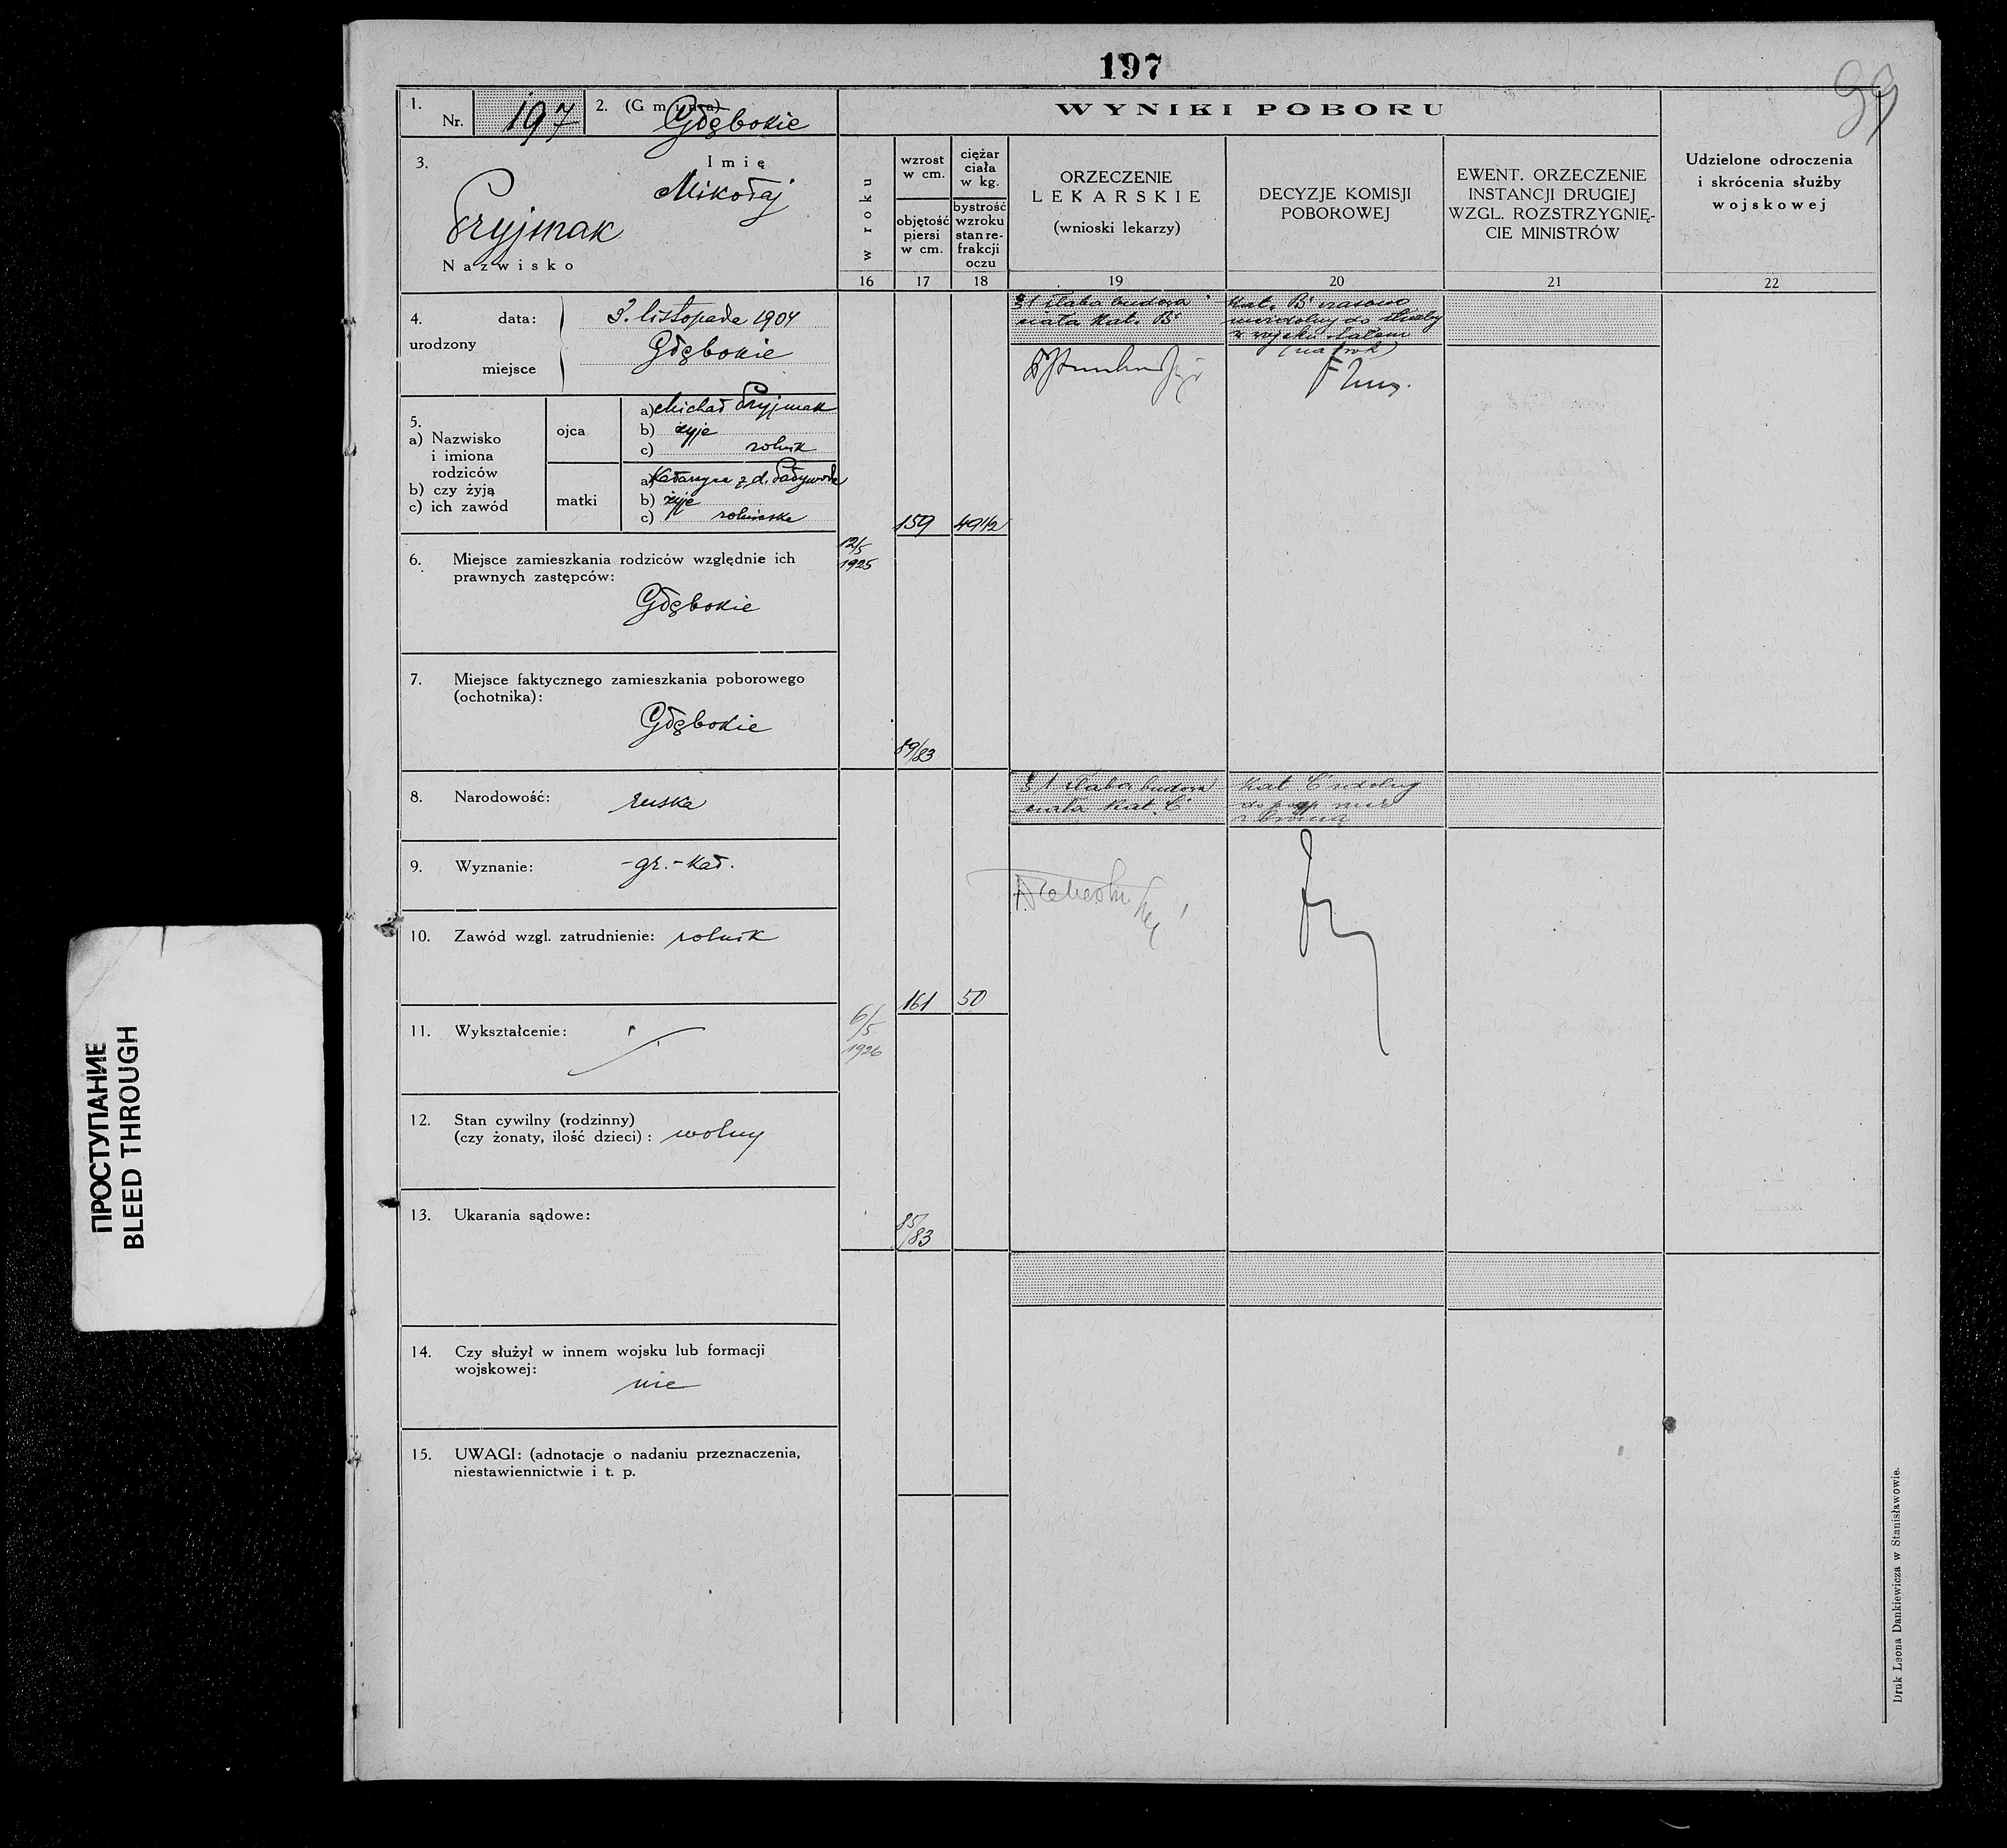 197
99
1. Nr. 197 2. (Gmina) Głębokie
WYNIKI POBORU
3. Imię
Mikołaj
Pryjmak
Nazwisko
w roku
wzrost w cm.
objętość piersi w cm.
ciężar ciała w kg.
bystrość wzroku stan refrakcji oczu
ORZECZENIE
LEKARSKIE
(wnioski lekarzy)
DECYZJE KOMISJI
POBOROWEJ
EWENT. ORZECZENIE
INSTANCJI DRUGIEJ
WZGL. ROZSTRZYGNIĘ-
CIE MINISTRÓW
Udzielone odroczenia
i skrócenia służby
wojskowej
16 17 18 19 20 21 22
4. urodzony
data: 3. listopada 1904
miejsce Głębokie
5.
a) Nazwisko
i imiona
rodziców
b) czy żyją
c) ich zawód
ojca
a) Michał Pryjmak
b) żyje
c) rolnik
matki
a) Katarzyna z d.
b) żyje
c) rolniczka
6. Miejsce zamieszkania rodziców względnie ich
prawnych zastępców:
Głębokie
7. Miejsce faktycznego zamieszkania poborowego
(ochotnika):
Głębokie
8. Narodowość: ruska
9. Wyznanie: -gr.-kat.
10. Zawód wzgl. zatrudnienie: rolnik
11. Wykształcenie:
12. Stan cywilny (rodzinny)
(czy żonaty, ilość dzieci): wolny
13. Ukarania sądowe:
14. Czy służył w innem wojsku lub formacji
wojskowej:
nie
15. UWAGI: (adnotacje o nadaniu przeznaczenia,
niestawiennictwie i t. p.
12/5
1925
159 49 1/2
89/83
§1 słaba budowa
ciała Kat. B
Kat. B czasowo
niezdolny do służby
w wojsku stałem
(na rok)
6/5
1926
161 50
85/83
§1 słaba budowa
ciała Kat. C
Kat C zdolny
do posp. rusz.
z bronią
Druk Leona Dankiewicza w Stanisławowie.
ПРОСТУПАНИЕ
BLEED THROUGH